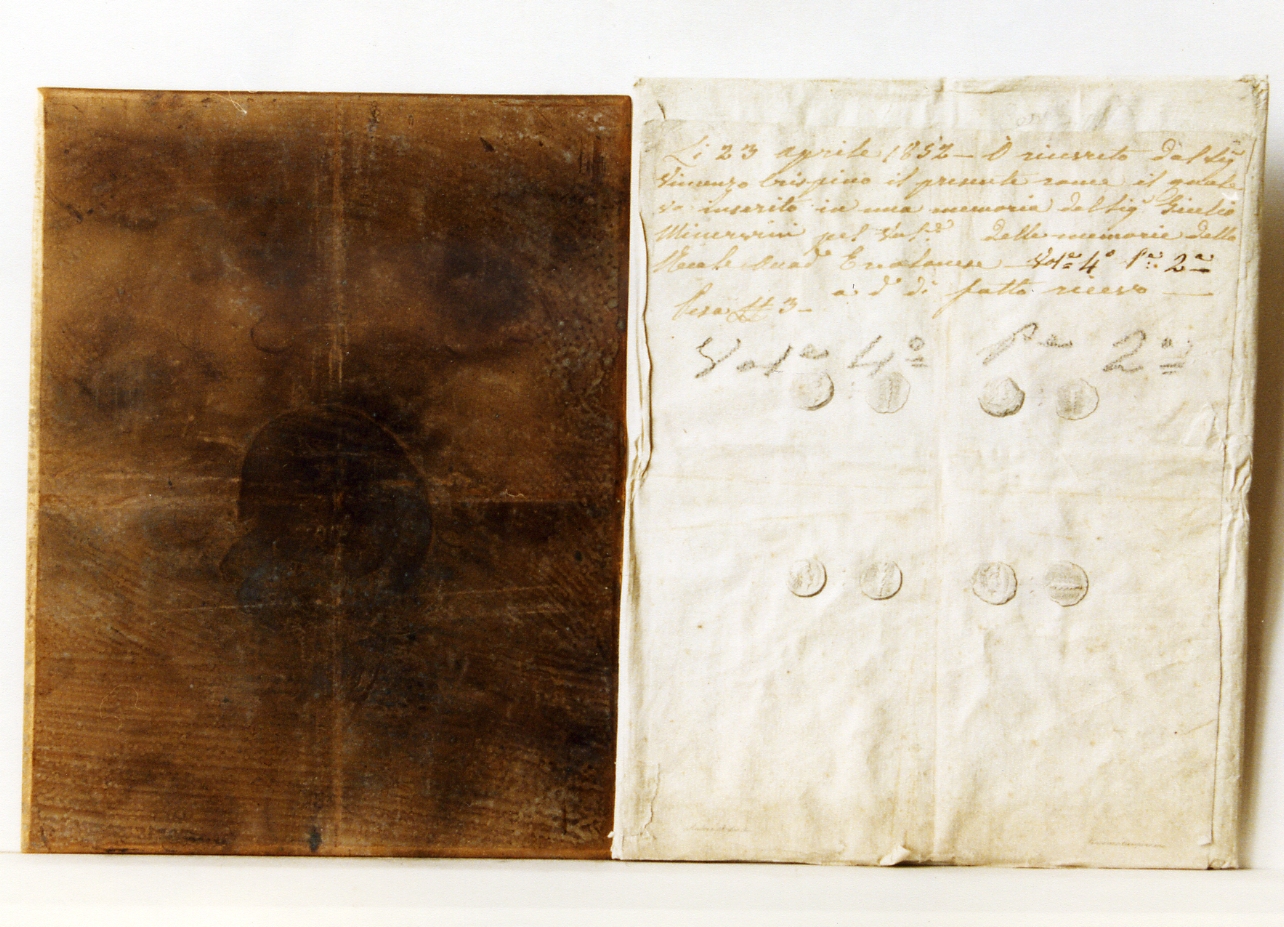 Li 23 aprile 1852 – O ricevuto dal Sigr
Vincenzo Crispino il presente rame il quale
va inserito in una memoria del Sigr Giulio
Minervini pel delle memorie della
Reale Accad. Ercolanese – Vole 4° Pe 2a
a d di fatto ricevo —
Pesa 3 –
Vole 4° Pe 2a